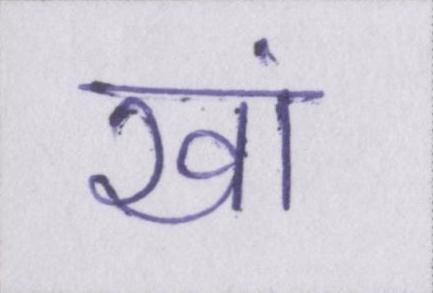 खां